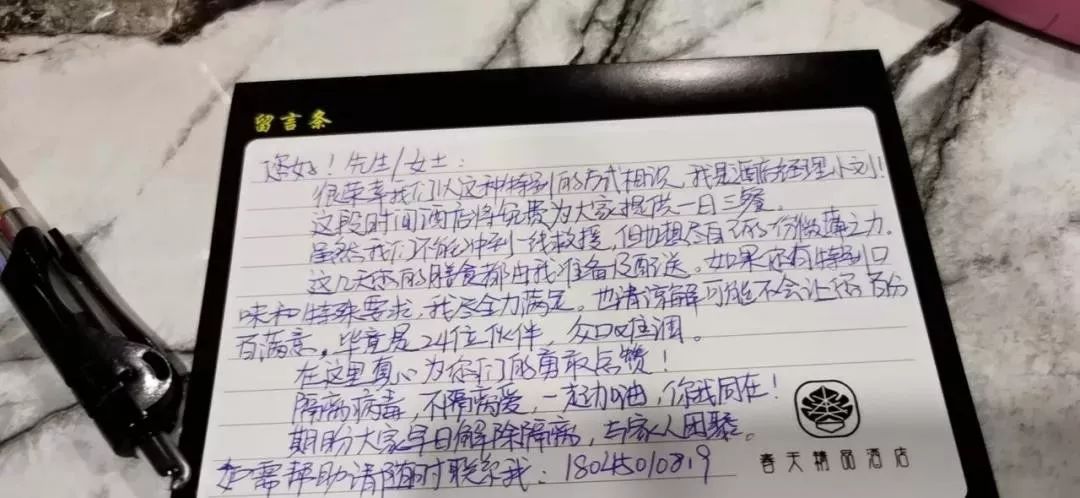 留言条
您好！先生/女士：
很荣幸我们以这种特别的方式相识，我是酒店经理小文！
这段时间酒店将免费为大家提供一日三餐。
虽然我们不能冲到一线救援，但也想尽自己的一份微薄之力。
这几天您的膳食都由我准备及配送。如果您有特别口
味和特殊要求，我尽全力满足。也请谅解可能不会让您百分
百满意。毕竟是24位伙伴，众口难调。
在这里真心为你们的勇敢点赞！
隔离病毒，不隔离爱，一起加油，你我同在！
期盼大家早日解除隔离，与家人团聚。
如需帮助请随时联系我：18045010819
春天精品酒店